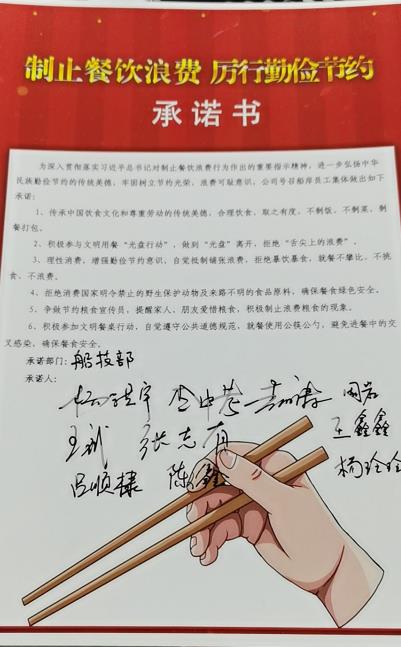 制止餐饮浪费 厉行勤俭节约
承诺书
为深入贯彻落实习近平总书记对制止餐饮浪费行为作出的重要指示精神，进一步弘扬中华
民族勤俭节约的传统美德，牢固树立节约光荣，浪费可耻意识，公司号召船岸员工集体做出如下
承诺：
1、传承中国饮食文化和尊重劳动的传统美德，合理饮食，取之有度，不剩饭，不剩菜，剩
餐打包。
2、积极参与文明用餐“光盘行动”，做到“光盘”离开，拒绝“舌尖上的浪费”。
3、理性消费，增强勤俭节约意识，自觉抵制铺张浪费，拒绝暴饮暴食，就餐不攀比，不挑
食，不浪费。
4、拒绝消费国家明令禁止的野生保护动物及来路不明的食品原料，确保餐食绿色安全。
5、争做节约粮食宣传员，提醒家人、朋友爱惜粮食，积极制止浪费粮食的现象。
6、积极参加文明餐桌行动，自觉遵守公共道德规范，就餐使用公筷公勺，避免进餐中的交
叉感染，确保餐食安全。
承诺部门：船技部
承诺人：
王斌 张志有 王鑫鑫
吕顺棣 陈鑫 杨玲玲